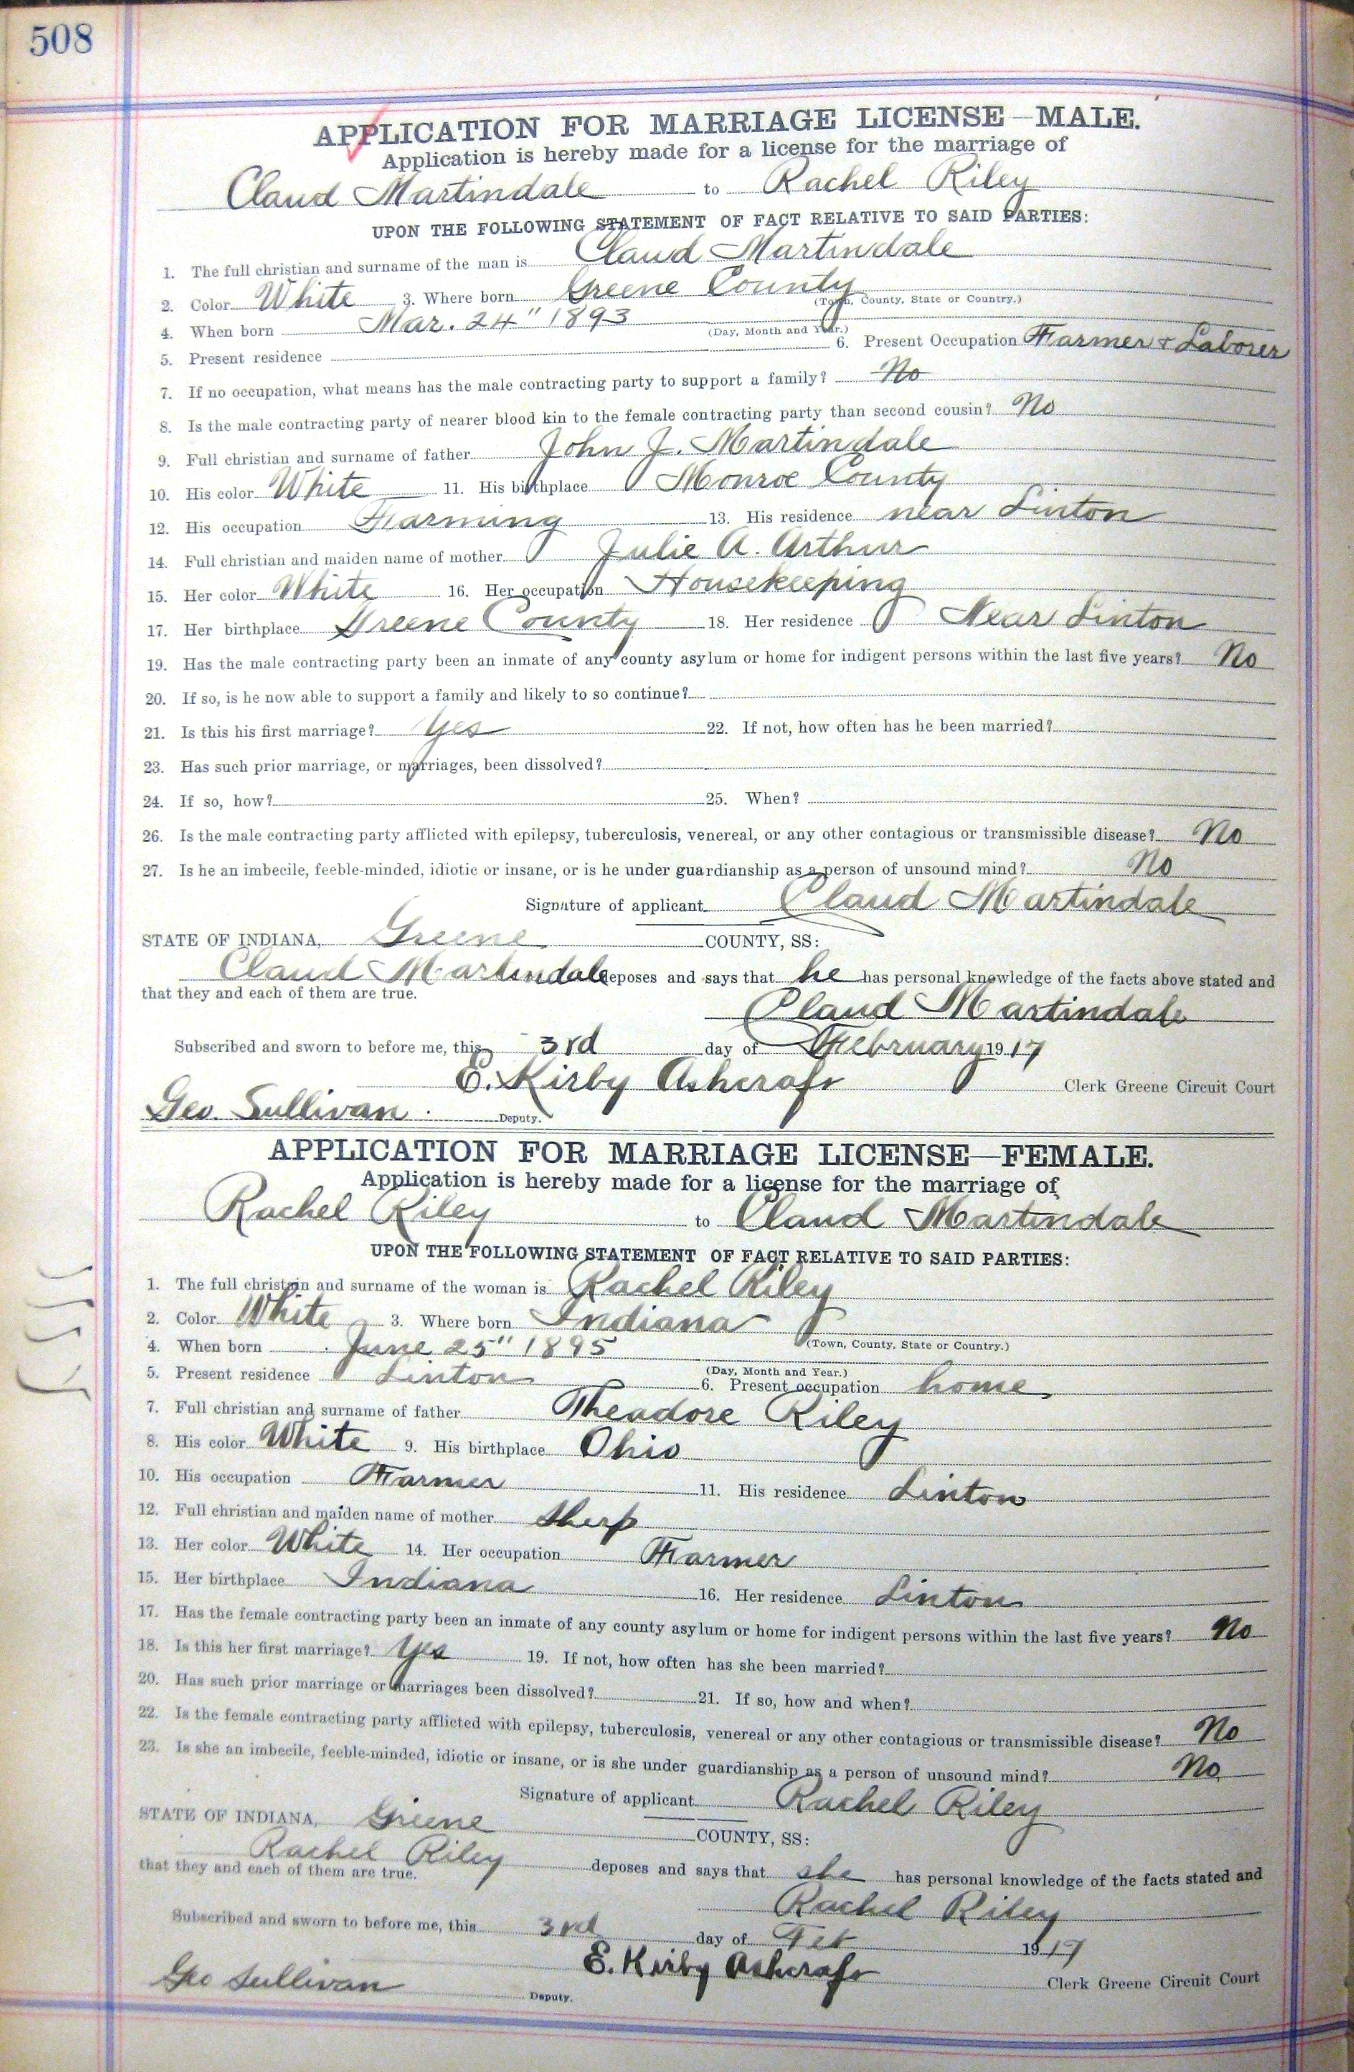 508
APPLICATION FOR MARRIAGE LICENSE—MALE.
Application is hereby made for a license for the marriage of
Claud Martindale to Rachel Riley
UPON THE FOLLOWING STATEMENT OF FACT RELATIVE TO SAID PARTIES:
1. The full christian and surname of the man is Claud Martindale
2. Color White 3. Where born Greene County
(Town, County, State or Country.)
4. When born Mar. 24" 1893
(Day, Month and Year.)
5. Present residence 6. Present Occupation Farmer & Laborer
7. If no occupation, what means has the male contracting party to support a family? No
8. Is the male contracting party of nearer blood kin to the female contracting party than second cousin? No
9. Full christian and surname of father John J. Martindale
10. His color White 11. His birthplace Monroe County
12. His occupation Farming 13. His residence near Linton
14. Full christian and maiden name of mother Julie A. Arthur
15. Her color White 16. Her occupation Housekeeping
17. Her birthplace Greene County 18. Her residence Near Linton
19. Has the male contracting party been an inmate of any county asylum or home for indigent persons within the last five years? No
20. If so, is he now able to support a family and likely to so continue?
21. Is this his first marriage? Yes 22. If not, how often has he been married?
23. Has such prior marriage, or marriages, been dissolved?
24. If so, how? 25. When?
26. Is the male contracting party afflicted with epilepsy, tuberculosis, venereal, or any other contagious or transmissible disease? No
27. Is he an imbecile, feeble-minded, idiotic or insane, or is he under guardianship as a person of unsound mind? No
Signature of applicant Claud Martindale
STATE OF INDIANA, Greene COUNTY, SS:
Claud Martindale deposes and says that he has personal knowledge of the facts above stated and
that they and each of them are true.
Claud Martindale
Subscribed and sworn to before me, this 3rd day of February 1917
E. Kirby Ashcraft Clerk Greene Circuit Court
Geo. Sullivan Deputy.
APPLICATION FOR MARRIAGE LICENSE—FEMALE.
Application is hereby made for a license for the marriage of
Rachel Riley to Claud Martindale
UPON THE FOLLOWING STATEMENT OF FACT RELATIVE TO SAID PARTIES:
1. The full christain and surname of the woman is Rachel Riley
2. Color White 3. Where born Indiana
(Town, County, State or Country.)
4. When born June 25" 1895
(Day, Month and Year.)
5. Present residence Linton 6. Present occupation home
7. Full christian and surname of father Theadore Riley
8. His color White 9. His birthplace Ohio
10. His occupation Farmer 11. His residence Linton
12. Full christian and maiden name of mother
13. Her color White 14. Her occupation Farmer
15. Her birthplace Indiana 16. Her residence Linton
17. Has the female contracting party been an inmate of any county asylum or home for indigent persons within the last five years? No
18. Is this her first marriage? Yes 19. If not, how often has she been married?
20. Has such prior marriage or marriages been dissolved? 21. If so, how and when?
22. Is the female contracting party afflicted with epilepsy, tuberculosis, venereal or any other contagious or transmissible disease? No
23. Is she an imbecile, feeble-minded, idiotic or insane, or is she under guardianship as a person of unsound mind? No
Signature of applicant Rachel Riley
STATE OF INDIANA, Greene COUNTY, SS:
Rachel Riley deposes and says that she has personal knowledge of the facts stated and
that they and each of them are true.
Rachel Riley
Subscribed and sworn to before me, this 3rd day of Feb 1917
E. Kirby Ashcraft Clerk Greene Circuit Court
Geo Sullivan Deputy.